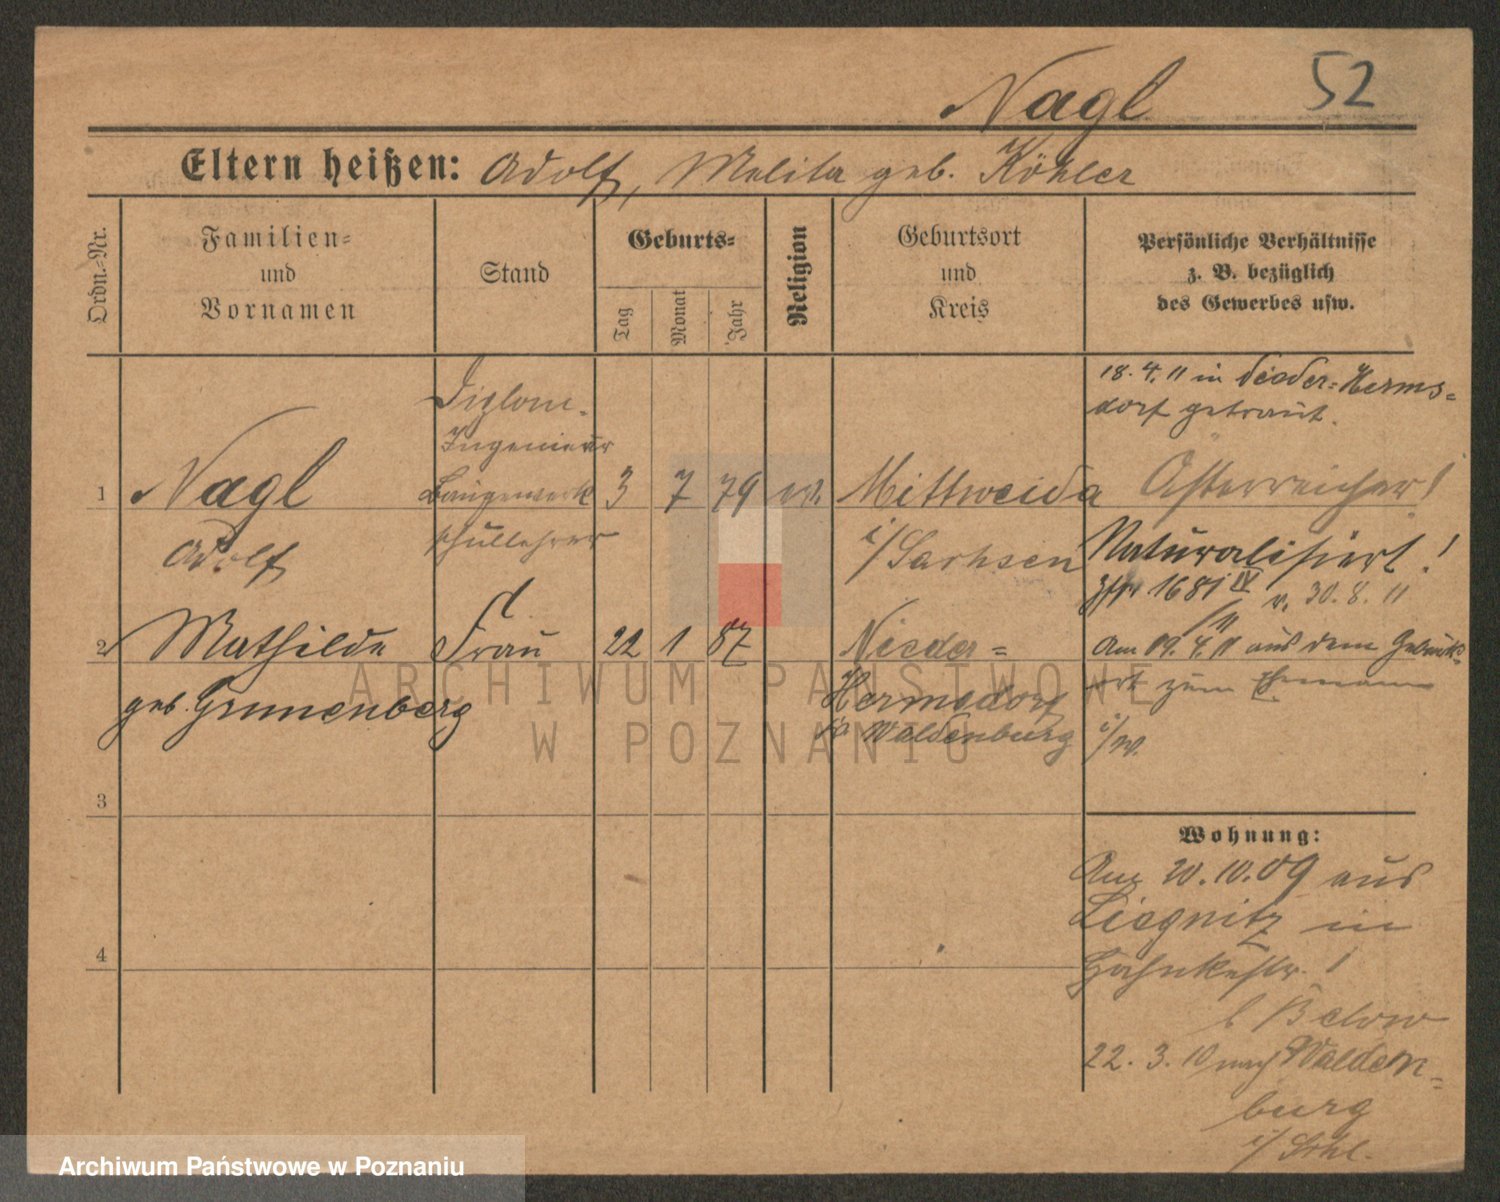 Nagl 52
Eltern heißen: Adolf, Melita geb. Köhler
Ordn.-Nr.
Familien-
und
Vornamen
Stand
Geburts-
Tag
Monat
Jahr
Religion
Geburtsort
und
Kreis
Persönliche Verhältnisse
z. B. bezüglich
des Gewerbes usw.
18.4.11 in Nieder-Herms-
dorf getraut.
Diplom-
Ingenieur
1 Nagl Baugewerk 3 7 79 ev. Mittweida Österreicher!
Adolf schullehrer i/Sachsen Naturalisiert!
1681 IV/11 v. 30.8.11
2 Mathilde Frau 22 1 87 Nieder- Am 19.4.11 aus dem Geburts-
geb. Grunenberg Hermsdorf ort zum Ehemann
Waldenburg
3
Wohnung:
Am 20.10.09 aus
Liegnitz in
Hohnkestr. 1
b Below
4
22.3.10 nach Walden-
burg
i/Schl.
ARCHIWUM PAŃSTWOWE
W POZNANIU
Archiwum Państwowe w Poznaniu